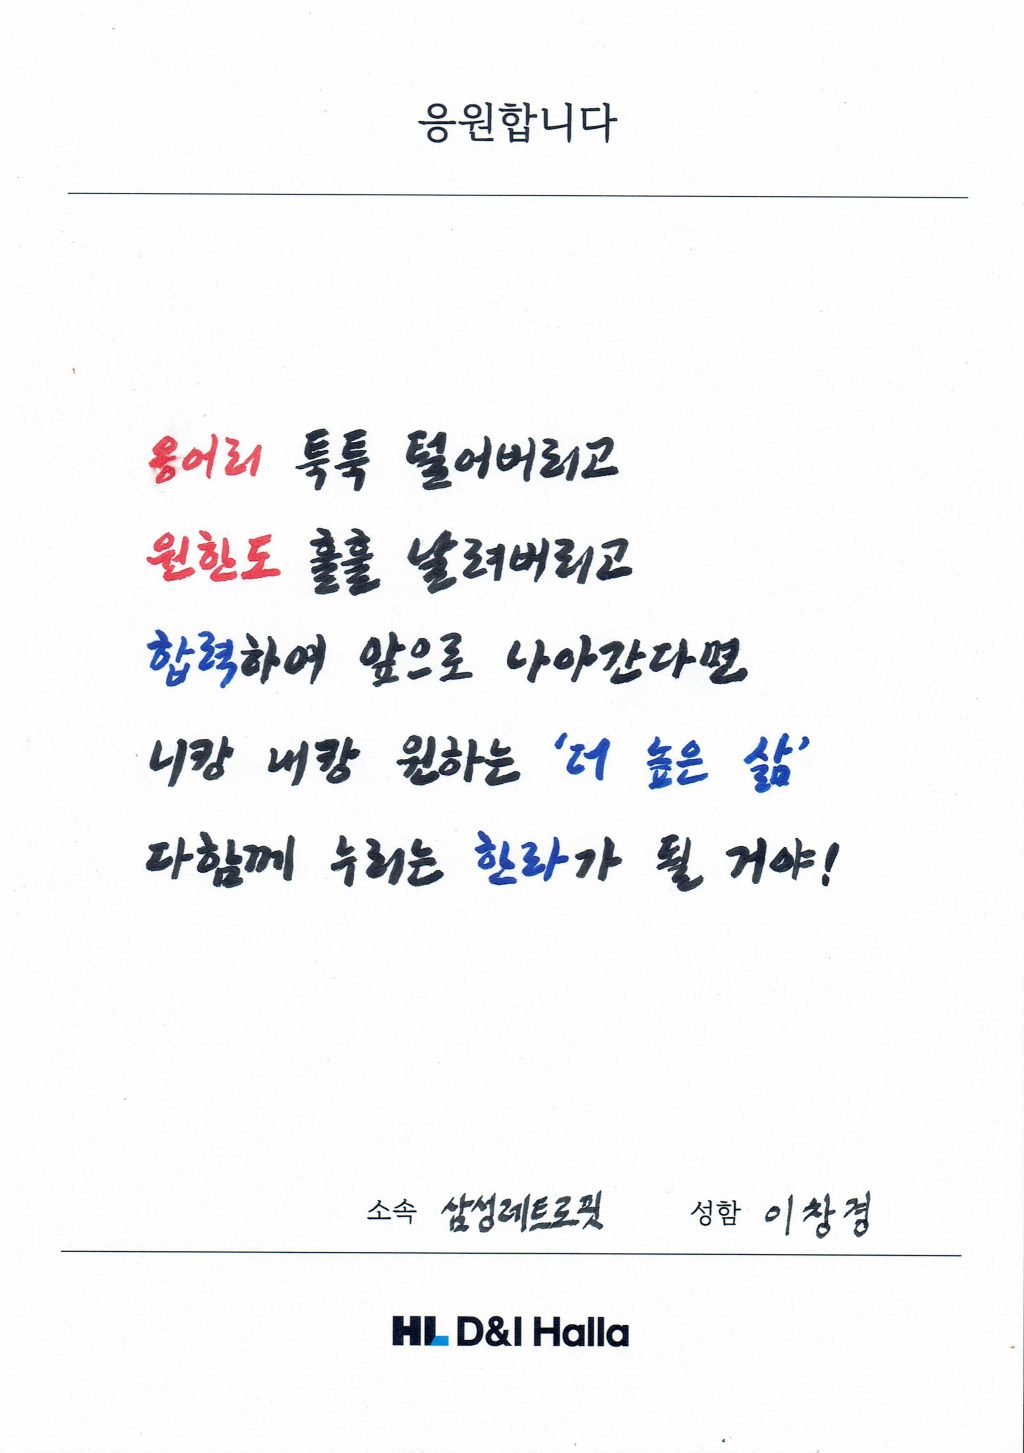 응원합니다
응어리 툭툭 털어버리고
원한도 훌훌 날려버리고
합력하여 앞으로 나아간다면
니캉 내캉 원하는 '더 높은 삶'
다함께 누리는 한라가 될 거야!
소속 삼성레트로핏 성함 이창경
HL D&I Halla